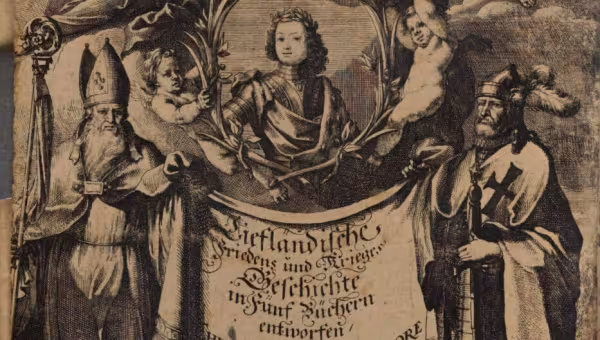 Liefländische
Friedens und Krieges
Geschichte
in Fünf Büchern
entworfen/